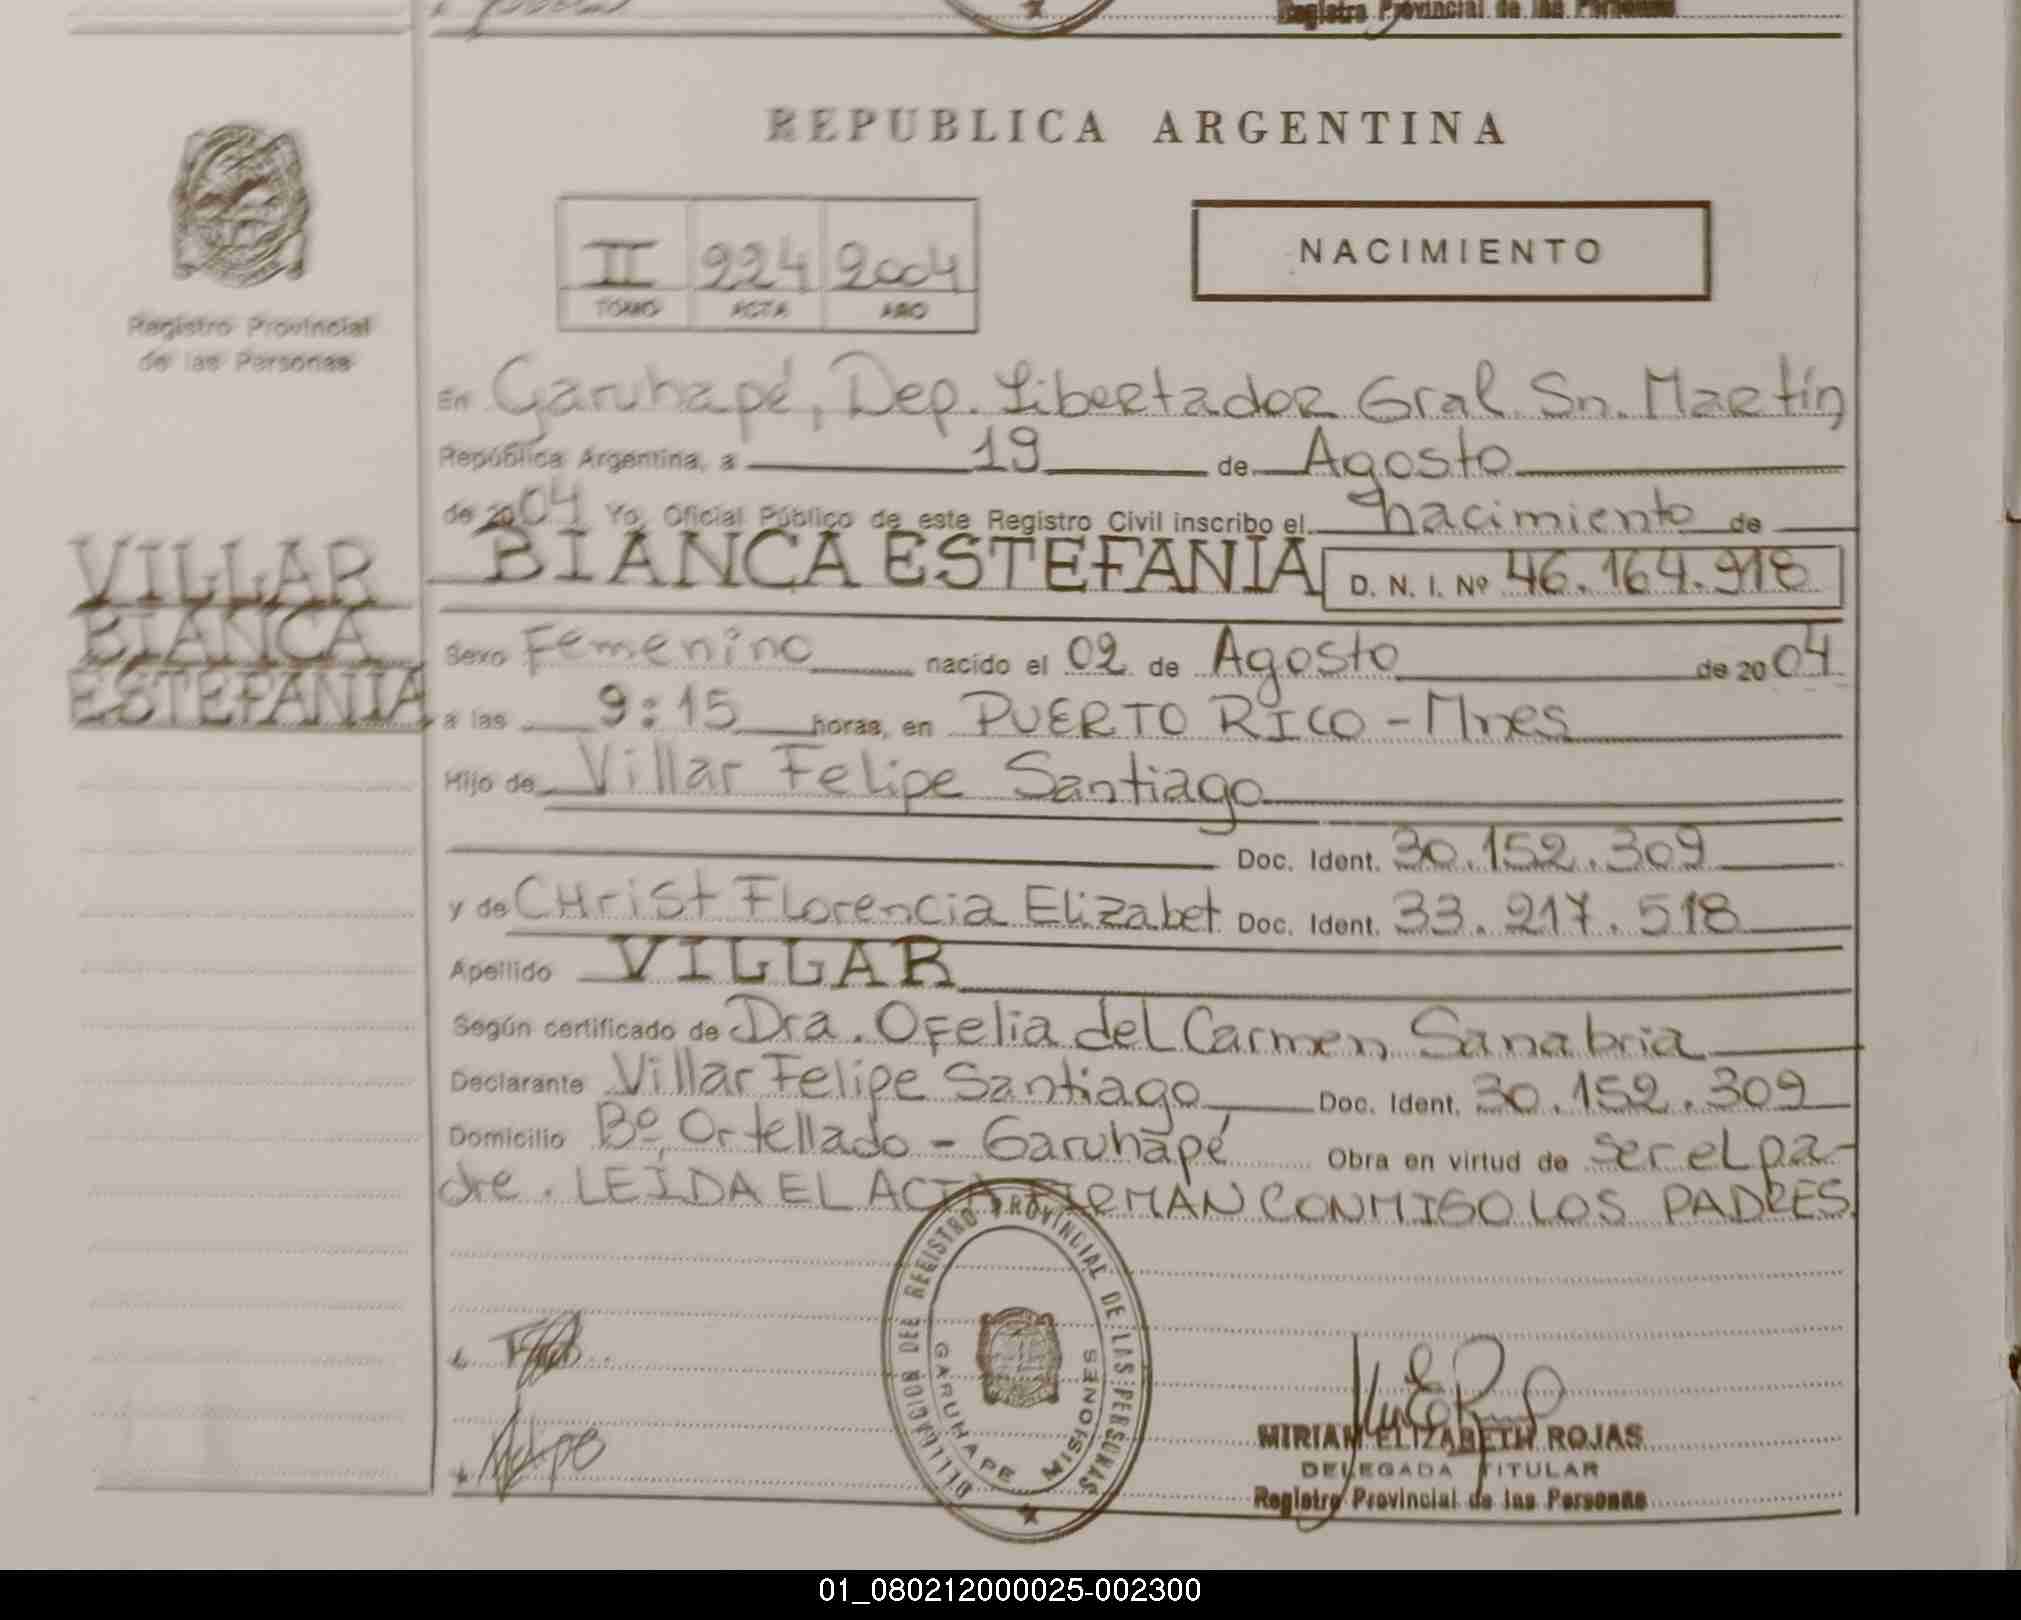 Registro Provincial de las Personas
REPUBLICA ARGENTINA
II 224 2004
TOMO ACTA AÑO
NACIMIENTO
Registro Provincial
de las Personas
En Garuhapé, Dep. Libertador Gral Sn. Martín
República Argentina, a 19 de Agosto
de 2004 Yo, Oficial Público de este Registro Civil inscribo el nacimiento de
VILLAR
BIANCA
ESTEFANIA
BIANCA ESTEFANIA D. N. I. Nº 46.164.918
Sexo Femenino nacido el 02 de Agosto de 2004
a las 9:15 horas, en PUERTO RICO - Mnes
Hijo de Villar Felipe Santiago
Doc. Ident. 30.152.309
y de CHrist Florencia Elizabet Doc. Ident. 33.217.518
Apellido VILLAR
Según certificado de Dra. Ofelia del Carmen Sanabria
Declarante Villar Felipe Santiago Doc. Ident. 30.152.309
Domicilio Bº Ortellado - Garuhapé Obra en virtud de ser el pa-
dre. LEIDA EL ACTA FIRMAN CONMIGO LOS PADRES.
DELEGACION DEL REGISTRO PROVINCIAL DE LAS PERSONAS
GARUHAPE MISIONES
MIRIAM ELIZABETH ROJAS
DELEGADA TITULAR
Registro Provincial de las Personas
01_080212000025-002300